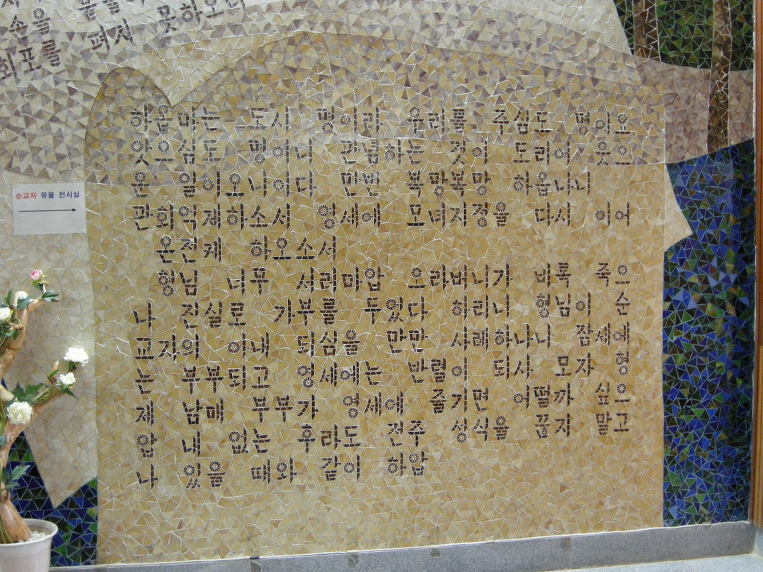 손을 펴서 못하오니
회포를
순교자 유물 전시실
하옵마는 도시 명이라 우리를 주심도 명이요
앗으심도 명이니 관념하는 것이 도리어 웃으
운 일이오니이다 만번 복망복망 하옵나니
관회임제하소서 영세에 모녀지정을 다시 이어
온전케 하오소서
형님 너무 서러마압 오라버니가 비록 죽으
나 진실로 가부를 두었다 하리니 형님이 순
교자의 아내 되심을 만만 사례하나니 잠세에
는 부부되고 영세에는 반렬이 되사 모자 형
제 남매 부부가 영세에 즐기면 어떨까 싶으
압 내 없는 후라도 전주 성식을 끊지 말고
나 있을 때와 같이 하압